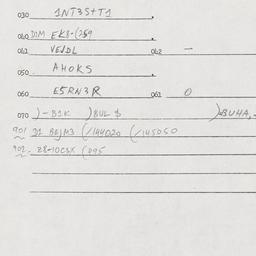 030 1NT3S+T1
040 DIM EK8-(259
041 VEJDL 042 —
050 AHOKS
060 E5RN3R 061 0
070 )-B1K )BUL $ )BUHA,-
901 J1 BEJM3 (/144020 (/145050
902 Z8-10C3X (095